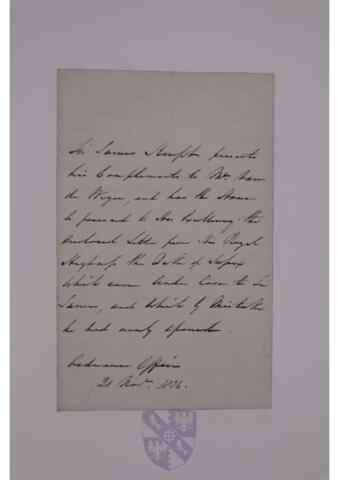 Sir James Kempt presents
his Compliments to Mr. Van
de Weyer, and has the Honor
to forward to His Excellency the
enclosed Letter from His Royal
Highness the Duke of Sussex
which came under Cover to Sir
James, and which by Mistake
he had nearly opened.
Ordnance Office
21 Novr. 1834.